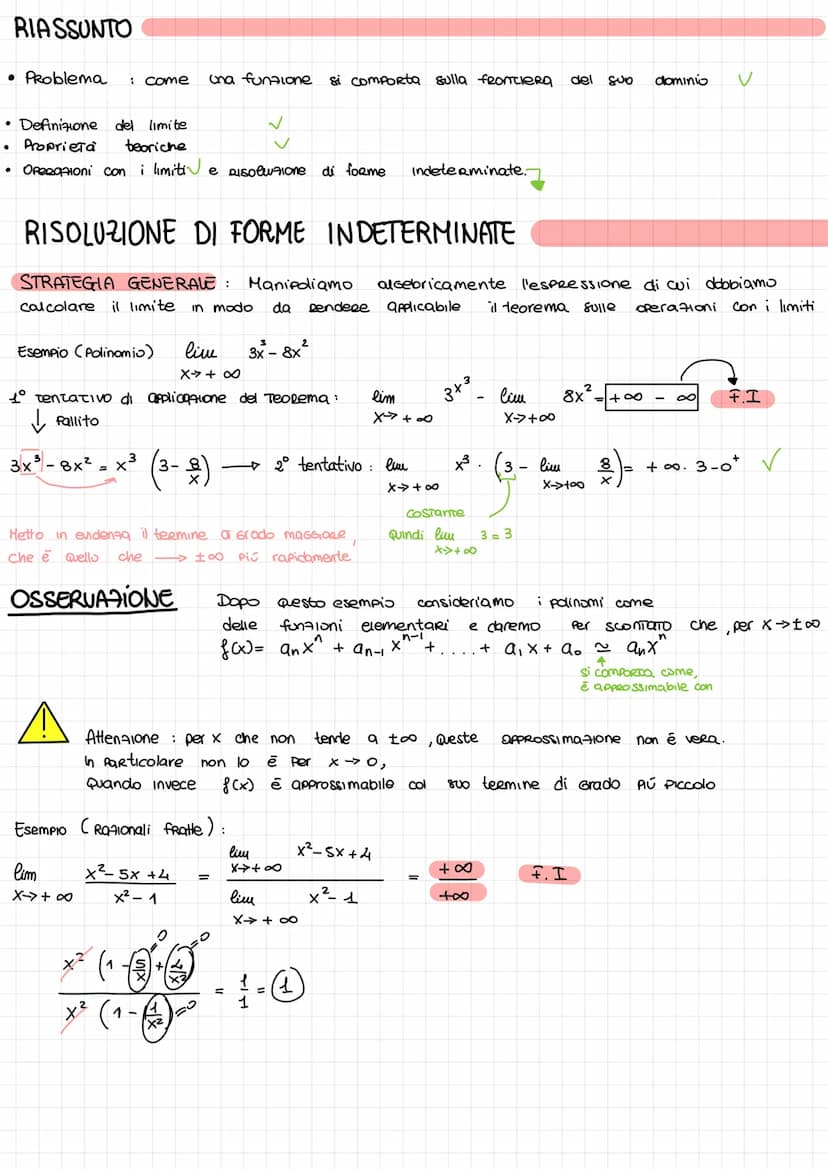 RIASSUNTO
• Problema : come una funzione si comporta sulla frontiera del suo dominio ✓
• Definizione del limite ✓
• Proprietà teoriche ✓
• Operazioni con i limiti ✓ e risoluzione di forme indeterminate.
RISOLUZIONE DI FORME INDETERMINATE
STRATEGIA GENERALE : Manipoliamo algebricamente l'espressione di cui dobbiamo
calcolare il limite in modo da rendere applicabile il teorema sulle operazioni con i limiti
Esempio (Polinomio) lim x→+∞ 3x³ - 8x²
1° tentativo di applicazione del Teorema : lim x→+∞ 3x³ - lim x→+∞ 8x² = +∞ - ∞ F.I
↓ Fallito
3x³ - 8x² = x³ (3 - 8/x) → 2° tentativo : lim x→+∞ x³ · (3 - lim x→+∞ 8/x) = +∞ · 3 - 0⁺ ✓
costante
Metto in evidenza il termine di grado maggiore, quindi lim x→+∞ 3 = 3
che è quello che → ±∞ più rapidamente
OSSERVAZIONE Dopo questo esempio consideriamo i polinomi come
delle funzioni elementari e daremo per scontato che, per x→±∞
f(x) = aₙxⁿ + aₙ₋₁xⁿ⁻¹ + .... + a₁x + a₀ ≃ aₙxⁿ
↑
si comporta come,
è approssimabile con
! Attenzione : per x che non tende a ±∞, queste approssimazione non è vera.
In particolare non lo è per x→0,
Quando invece f(x) è approssimabile col suo termine di grado più piccolo
Esempio (Razionali fratte) :
lim x→+∞ (x² - 5x + 4)/(x² - 1) = (lim x→+∞ x² - 5x + 4)/(lim x→+∞ x² - 1) = +∞/+∞ F.I
x² (1 - 5/x =0 + 4/x² =0) / x² (1 - 1/x² =0) = 1/1 = 1